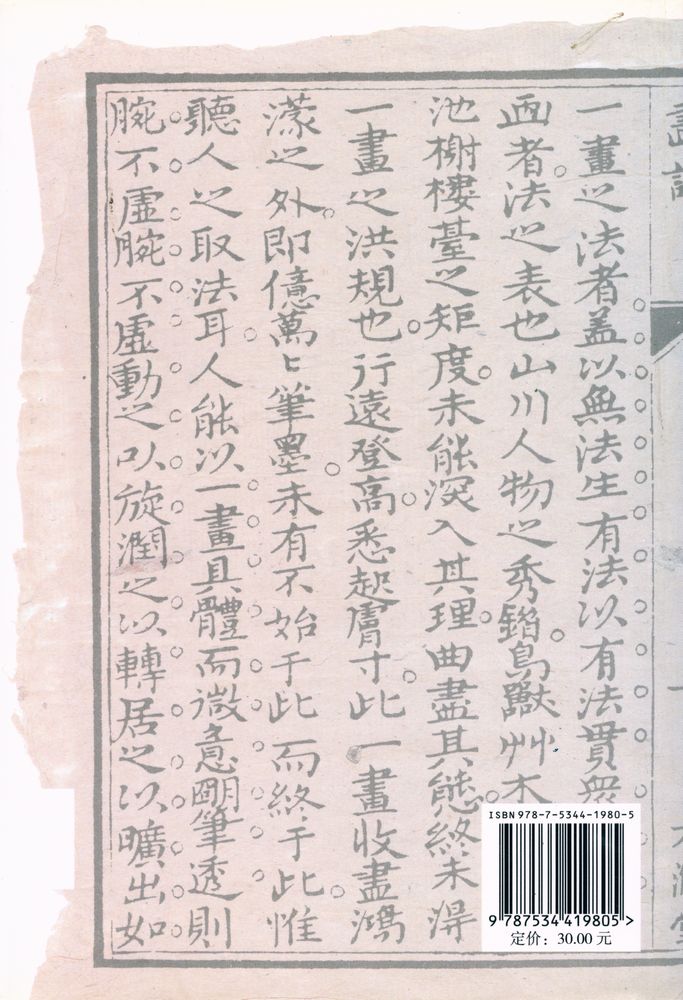 一畫之法者蓋以無法生有法以有法貫衆
画者法之表也山川人物之秀錯鳥獸艸木
池榭樓臺之矩度未能深入其理曲盡其態終未得
一畫之洪規也行遠登高悉起膚寸此一畫收盡鴻
濛之外即億萬〻筆墨未有不始于此而終于此惟
聽人之取法耳人能以一畫具體而微意朙筆透則
腕不虛腕不虛動之以旋潤之以轉居之以曠出如
ISBN 978-7-5344-1980-5
9 787534 419805 >
定价：30.00 元